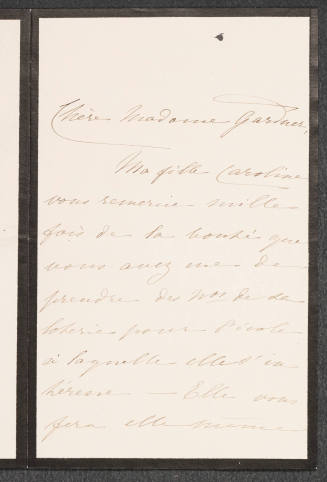 Chère Madame Gardner,
Ma fille Caroline
vous remercie mille
fois de la bonté que
vous avez eue de
prendre des Nos de sa
loterie pour l'école
à laquelle elle s'in
téresse — Elle vous
fera elle même